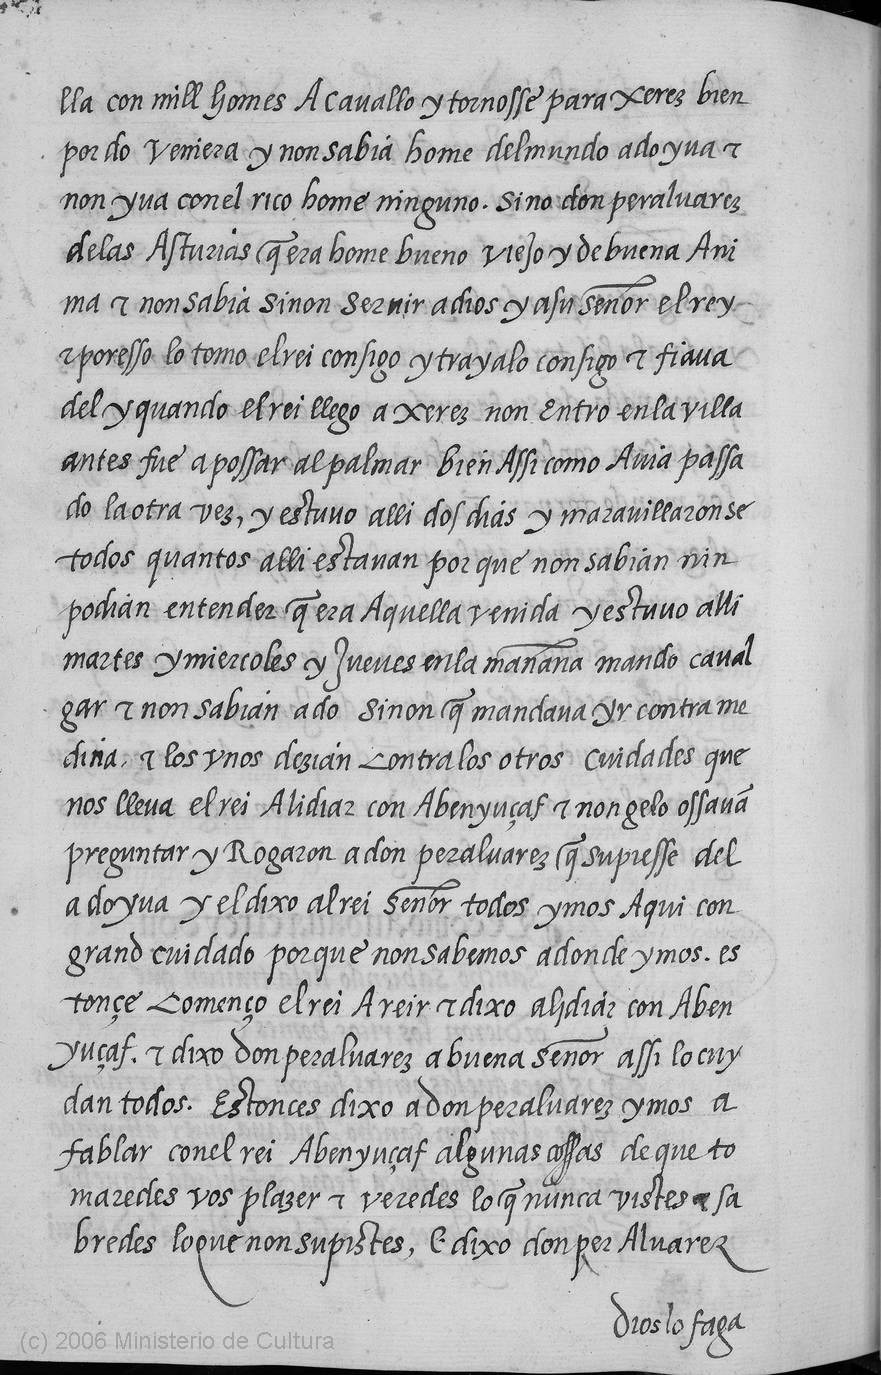 lla con mill homes A cauallo y tornosse para xerez bien
por do Veniera y non sabia home del mundo ado yua τ
non yua con el rico home ninguno. Sino don peraluarez
de las Asturias q̃ era home bueno viejo y de buena Ani
ma τ non sabia sinon seruir a dios y a su señor el rey
τ poresso lo tomo el rei consigo y trayalo consigo τ fiaua
del y quando el rei llego a xerez non Entro en la villa
antes fue a possar al palmar bien Assi como Auia passa
do la otra vez, y estuuo alli dos dias y marauillaronse
todos quantos alli estauan por que non sabian nin
podian entender q̃ era Aquella venida y estuuo alli
martes y miercoles y Jueues en la mañana mando caual
gar τ non sabian ado sinon q̃ mandaua yr contra me
dina, τ los vnos dezian Contra los otros Cuidades que
nos lleua el rei A lidiar con Abenyuçaf τ non gelo ossauã
preguntar y Rogaron a don peraluarez q̃ supiesse del
ado yua y el dixo al rei señor todos ymos Aqui con
grand cuidado porque non sabemos adonde ymos. es
tonçe Començo el rei A reir τ dixo alidiar con Aben
yuçaf. τ dixo don peraluarez a buena señor assi lo cuy
dan todos. Estonces dixo a don peraluarez ymos a
fablar con el rei Abenyuçaf algunas cossas de que to
maredes vos plazer τ veredes lo q̃ nunca vistes τ sa
bredes lo que non supistes, E dixo don per Aluarez
dios lo faga
(c) 2006 Ministerio de Cultura